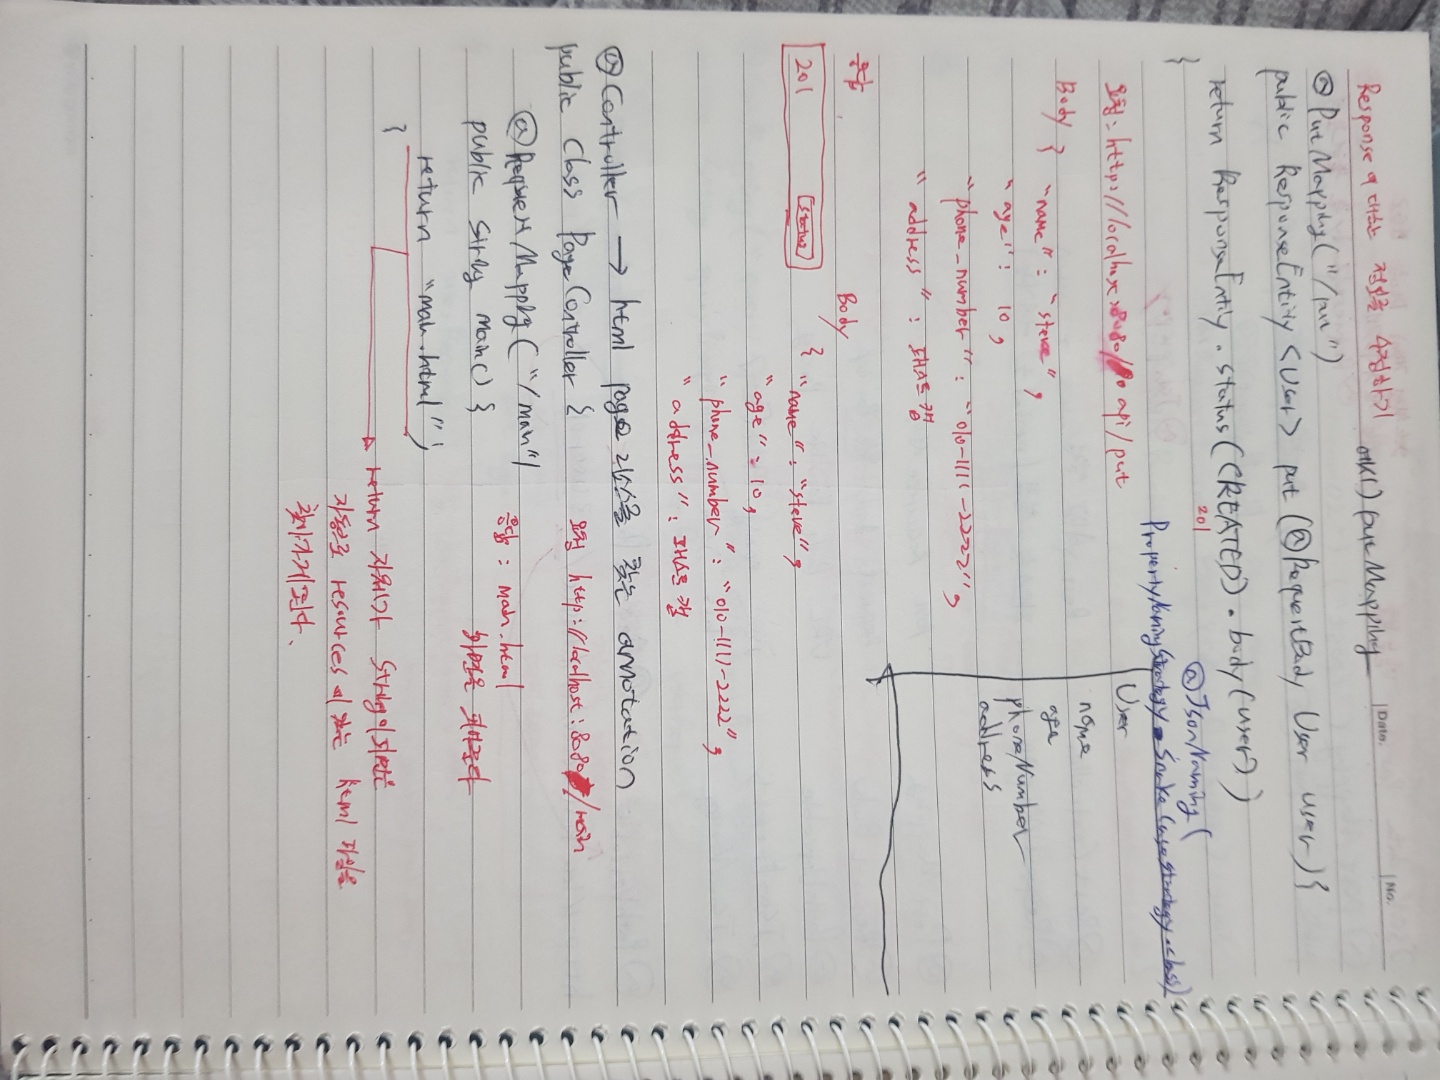 Date.
No.
Response에 대한 정보를 수정하기
@PutMapping("/put")
public ResponseEntity <User> put (@RequestBody User user) {
return ResponseEntity.status(CREATED).body(user);
201
}
@JsonNaming(
PropertyNamingStrategy.SnakeCaseStrategy.class)
User
name
age
phoneNumber
address
요청: http://localhost:8080/api/put
Body { "name": "steve",
"age": 10,
"phone_number": "010-1111-2222",
"address": 패스트캠
응답
201 status
Body
{ "name": "steve",
"age": 10,
"phone_number": "010-1111-2222",
"address": 패스트캠
@Controller → html page 리소스를 찾는 annotation
public class PageController {
요청 http://localhost:8080/main
@RequestMapping("/main")
응답: main.html
public String main() {
화면을 리턴
return "main.html";
}
return 자체가 String이 되면
자동으로 resources에 있는 html 파일을
찾아가게 된다.